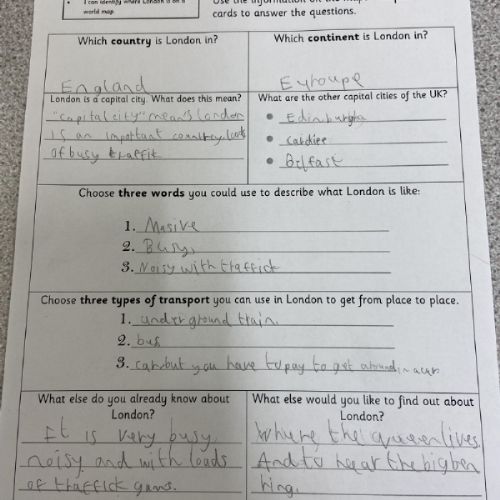 I can identify where London is on a
world map.
cards to answer the questions.
Which country is London in?
England
Which continent is London in?
Eyroupe
London is a capital city. What does this mean?
"capital city" mean's London
is an important country loads
of busy traffit
What are the other capital cities of the UK?
Edinburgha
cardiee
Belfast
Choose three words you could use to describe what London is like:
1. Masive
2. Busy,
3. Noisy with traffick
Choose three types of transport you can use in London to get from place to place.
1. underground train.
2. bus
3. car but you have to pay to get around in a car
What else do you already know about
London?
It is very busy
noisy and with loads
of traffick gams.
What else would you like to find out about
London?
Where the queen lives
And to hear the big ben
ring.